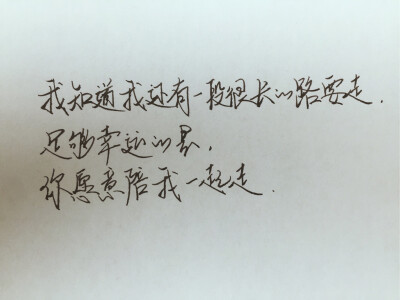 我知道我还有一段很长的路要走.
足够幸运的是,
你愿意陪我一起走.